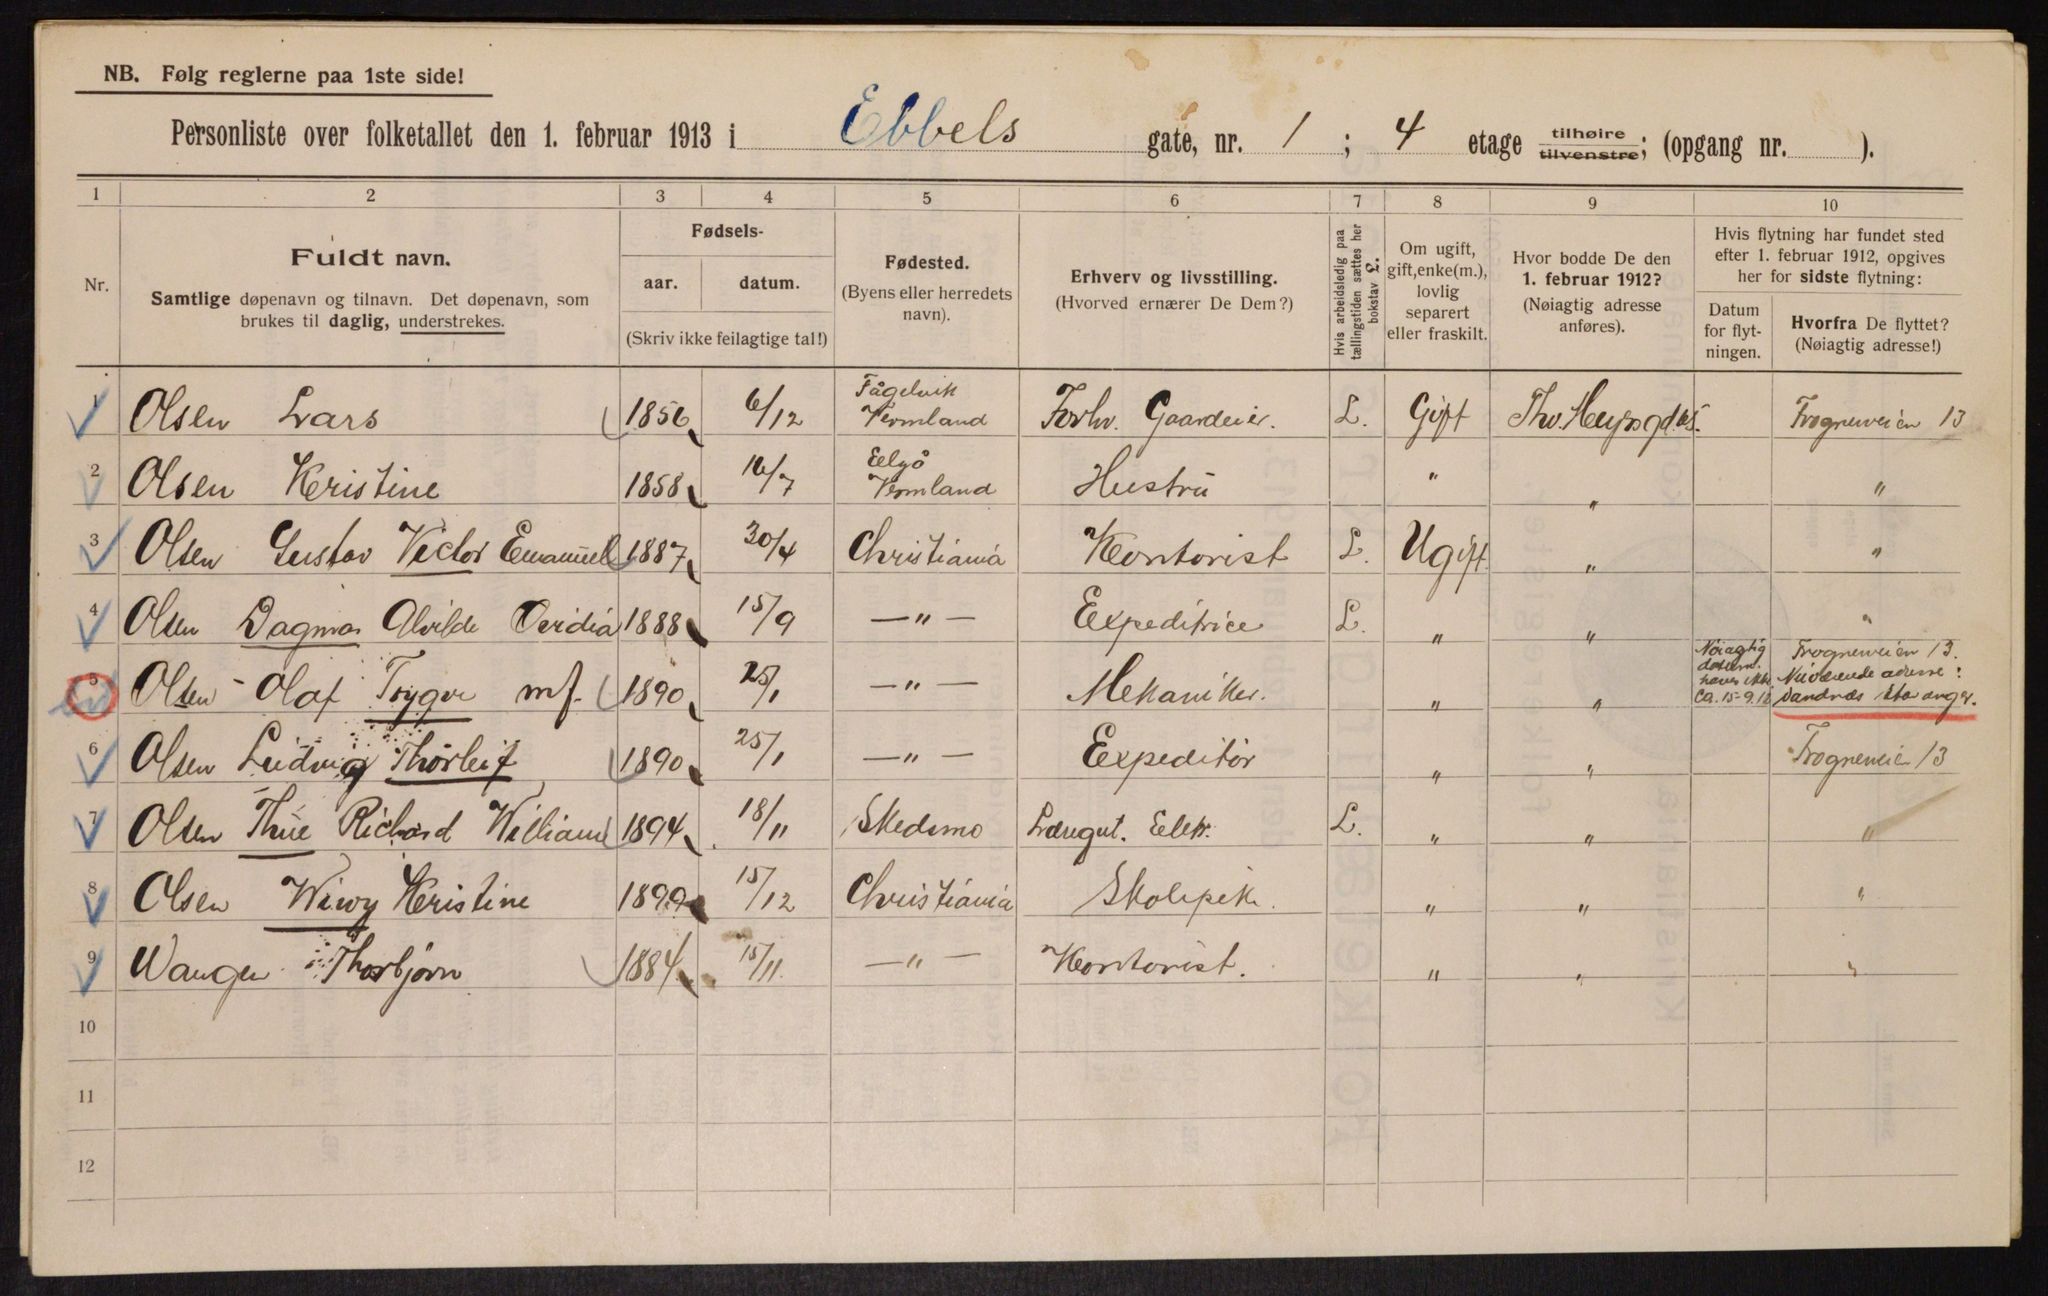 NB. Følg reglerne paa 1ste side!
Personliste over folketallet den 1. februar 1913 i Ebbels gate, nr. 1 ; 4 etage tilhøire tilvenstre; (opgang nr. ).
1 2 3 4 5 6 7 8 9 10
Nr.
Fuldt navn.
Samtlige døpenavn og tilnavn. Det døpenavn, som
brukes til daglig, understrekes.
Fødsels-
aar. datum.
(Skriv ikke feilagtige tal!)
Fødested.
(Byens eller herredets
navn).
Erhverv og livsstilling.
(Hvorved ernærer De Dem?)
Hvis arbeidsledig paa
tællingstiden sættes her
bokstav L.
Om ugift,
gift, enke(m.),
lovlig
separert
eller fraskilt.
Hvor bodde De den
1. februar 1912?
(Nøiagtig adresse
anføres).
Hvis flytning har fundet sted
efter 1. februar 1912, opgives
her for sidste flytning:
Datum
for flyt-
ningen.
Hvorfra De flyttet?
(Nøiagtig adresse!)
1 Olsen Lars 1856 6/12 Fågelvik Vermland Forhv. Gaardeier. L. Gift Tho. Heyrsgd. Frogneveien 13
2 Olsen Kristine 1858 16/7 Vermland Hustru " " "
3 Olsen Gustav Victor Emanuel 1887 30/4 Christiania Kontorist L. Ugift. " "
4 Olsen Dagmar Alvilde Ovidia 1888 15/9 — " — Expeditrice L. " " "
5 Olsen Olaf Trygve mf. 1890 25/1 — " — Mekaniker. " " Nøiagtig datum haves ikke Ca. 15-9.12 Frogneveien 13. Nuværende adresse: Sandnæs Stavanger.
6 Olsen Ludvig Thorleif 1890 25/1 — " — Expeditør " " Frogneveien 13
7 Olsen Thue Richard William 1894 18/11 Skedsmo Læregut. Elek. L. " " "
8 Olsen Wiwy Kristine 1899 15/12 Christiania Skolepike. " " "
9 Wangen Thorbjørn 1884 15/11. — " — Kontorist. " " "
10
11
12